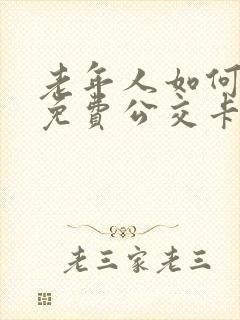 老年人如何
免费公交卡
老三家老三